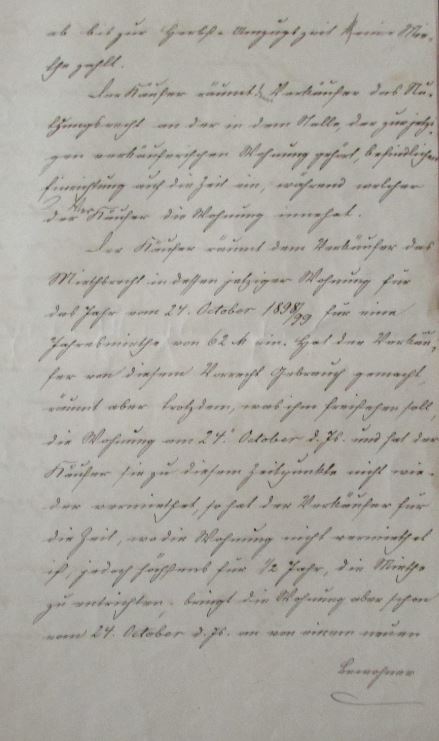 ab bis zur Herbst-Umzugszeit keine Mie-
the zahlt.
Der Käufer räumt Verkäufer das Nu-
tzungsrecht an der in dem Stalle, der zur jetzi-
gen verkäuferischen Wohnung gehört, befindlichen
Einrichtung auf die Zeit ein, während welcher
der Käufer die Wohnung innehat.
Der Käufer räumt dem Verkäufer das
Miethsrecht in dessen jetziger Wohnung für
das Jahr vom 24. October 1898/99 für eine
Jahresmiethe von 62 M ein. Hat der Verkäu-
fer von diesem Vorrecht Gebrauch gemacht,
räumt aber trotzdem, was ihm freistehen soll,
die Wohnung am 24. October d. Js. und hat der
Käufer sie zu diesem Zeitpunkte nicht wie-
der vermiethet, so hat der Verkäufer für
die Zeit, wo die Wohnung nicht vermiethet
ist, jedoch höchstens für 1/2 Jahr, die Miethe
zu entrichten, bringt die Wohnung aber schon
vom 24. October d. Js. an von einem neuen
Bewohner